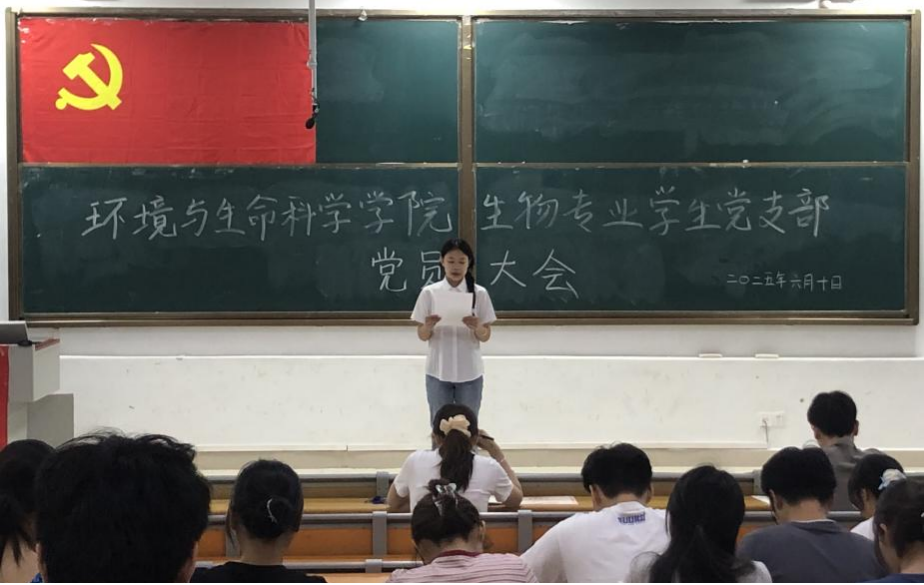 环境与生命科学学院 生物专业学生党支部
党员大会
二〇二五年六月十日